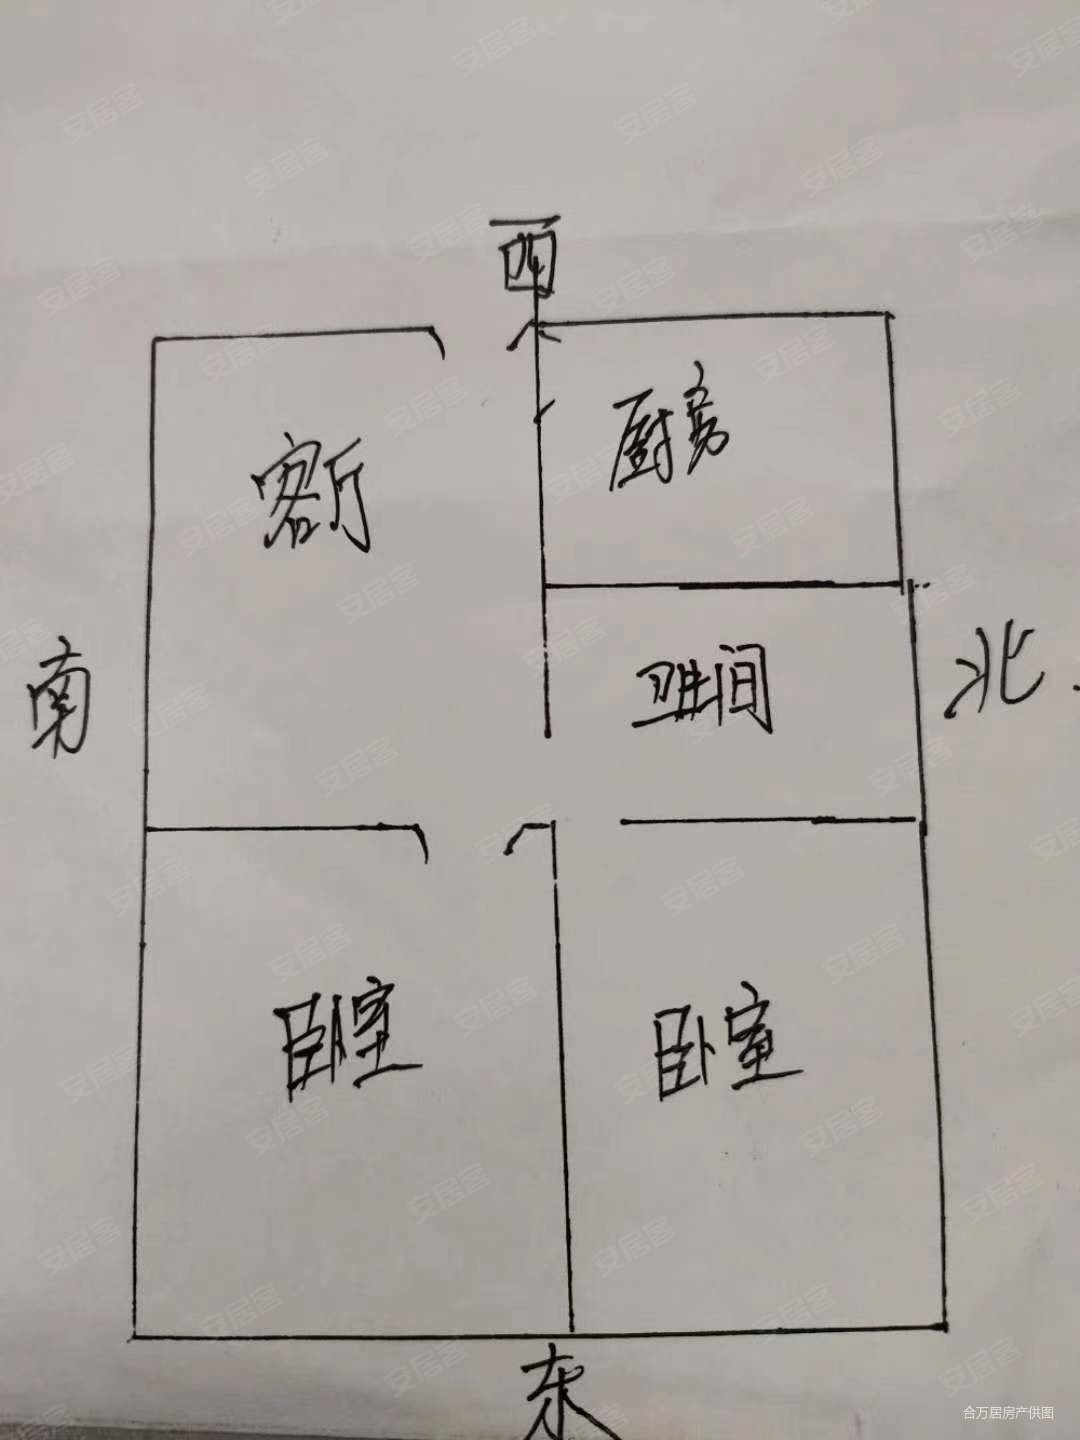 西
客厅
厨房
南
卫生间
北
卧室
卧室
东
安居客
合万居房产供图